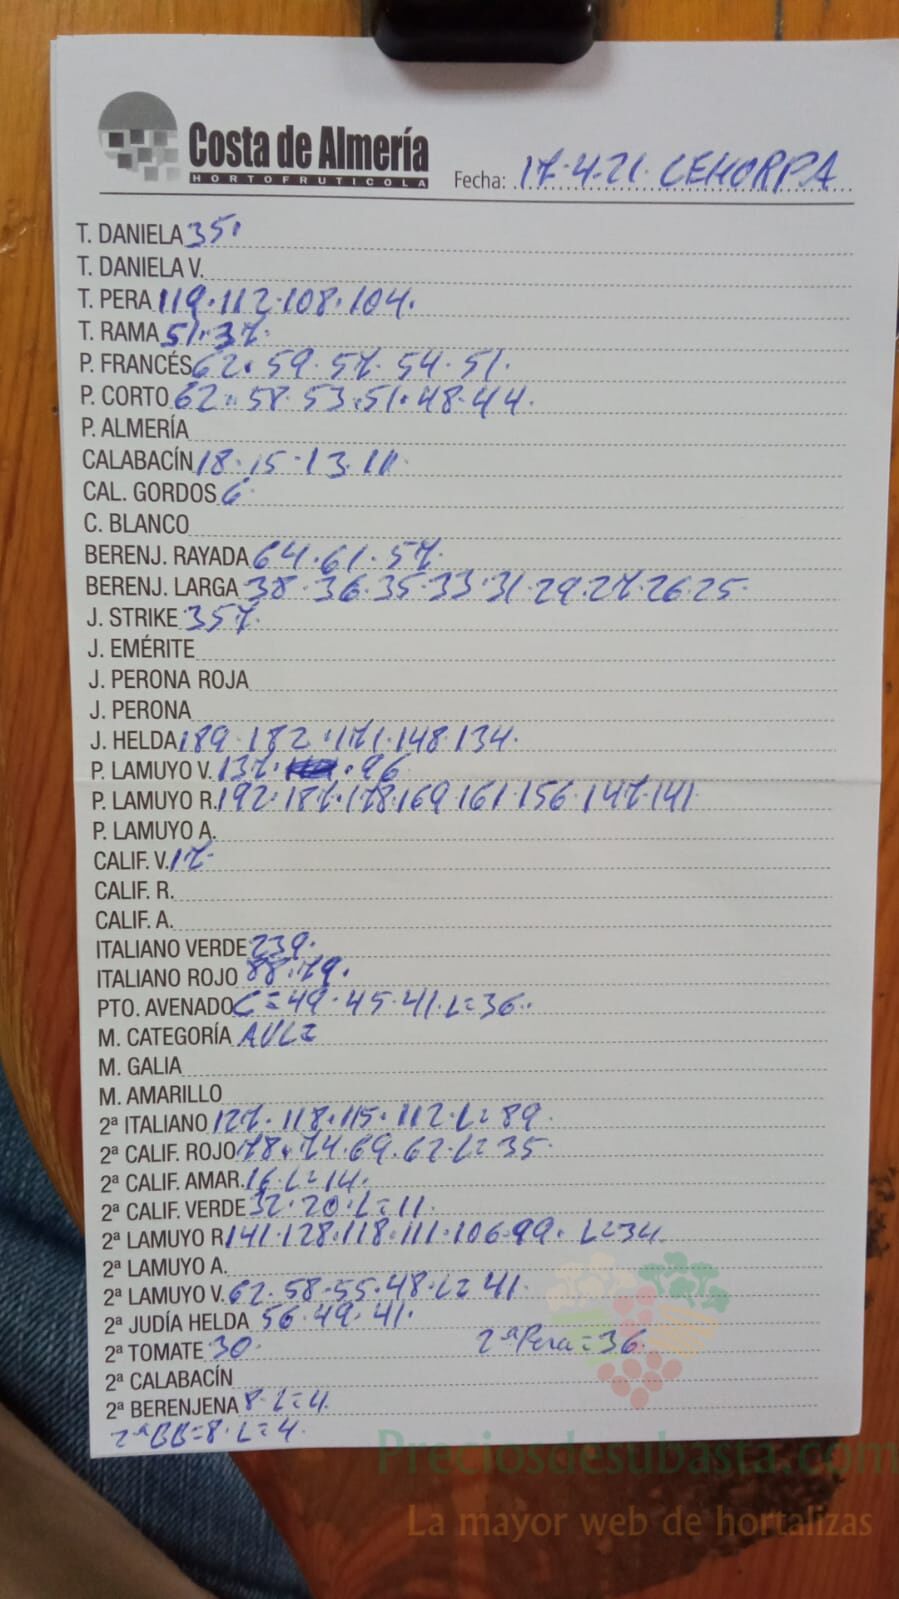 Costa de Almería
HORTOFRUTICOLA
Fecha: 17.4.21. CEHORPA
T. DANIELA 35.
T. DANIELA V.
T. PERA 119.112.108.104.
T. RAMA 51.37.
P. FRANCÉS 62.59.57.54.51.
P. CORTO 62.58.53.51.48.44.
P. ALMERÍA
CALABACÍN 18.15.13.11.
CAL. GORDOS 6.
C. BLANCO
BERENJ. RAYADA 64.61.57.
BERENJ. LARGA 38.36.35.33.31.29.27.26.25.
J. STRIKE 357.
J. EMÉRITE
J. PERONA ROJA
J. PERONA
J. HELDA 189.182.171.148.134.
P. LAMUYO V. 137. .96
P. LAMUYO R. 192.187.178.169.161.156.147.141
P. LAMUYO A.
CALIF. V. 17.
CALIF. R.
CALIF. A.
ITALIANO VERDE 239.
ITALIANO ROJO 88.79.
PTO. AVENADO C=49.45.41.L=36..
M. CATEGORÍA
M. GALIA
M. AMARILLO
2ª ITALIANO 127.118.115.112.L=89
2ª CALIF. ROJO 78.74.69.62.L=35
2ª CALIF. AMAR. 16.L=14.
2ª CALIF. VERDE 32.20.L=11.
2ª LAMUYO R 141.128.118.111.106.99. L=34
2ª LAMUYO A.
2ª LAMUYO V. 62.58.55.48.L=41.
2ª JUDÍA HELDA 56.49.41.
2ª TOMATE 30. 2ªPera=36
2ª CALABACÍN
2ª BERENJENA 8.L=4.
2ªBB=8.L=4.
Preciosdesubasta.com
La mayor web de hortalizas